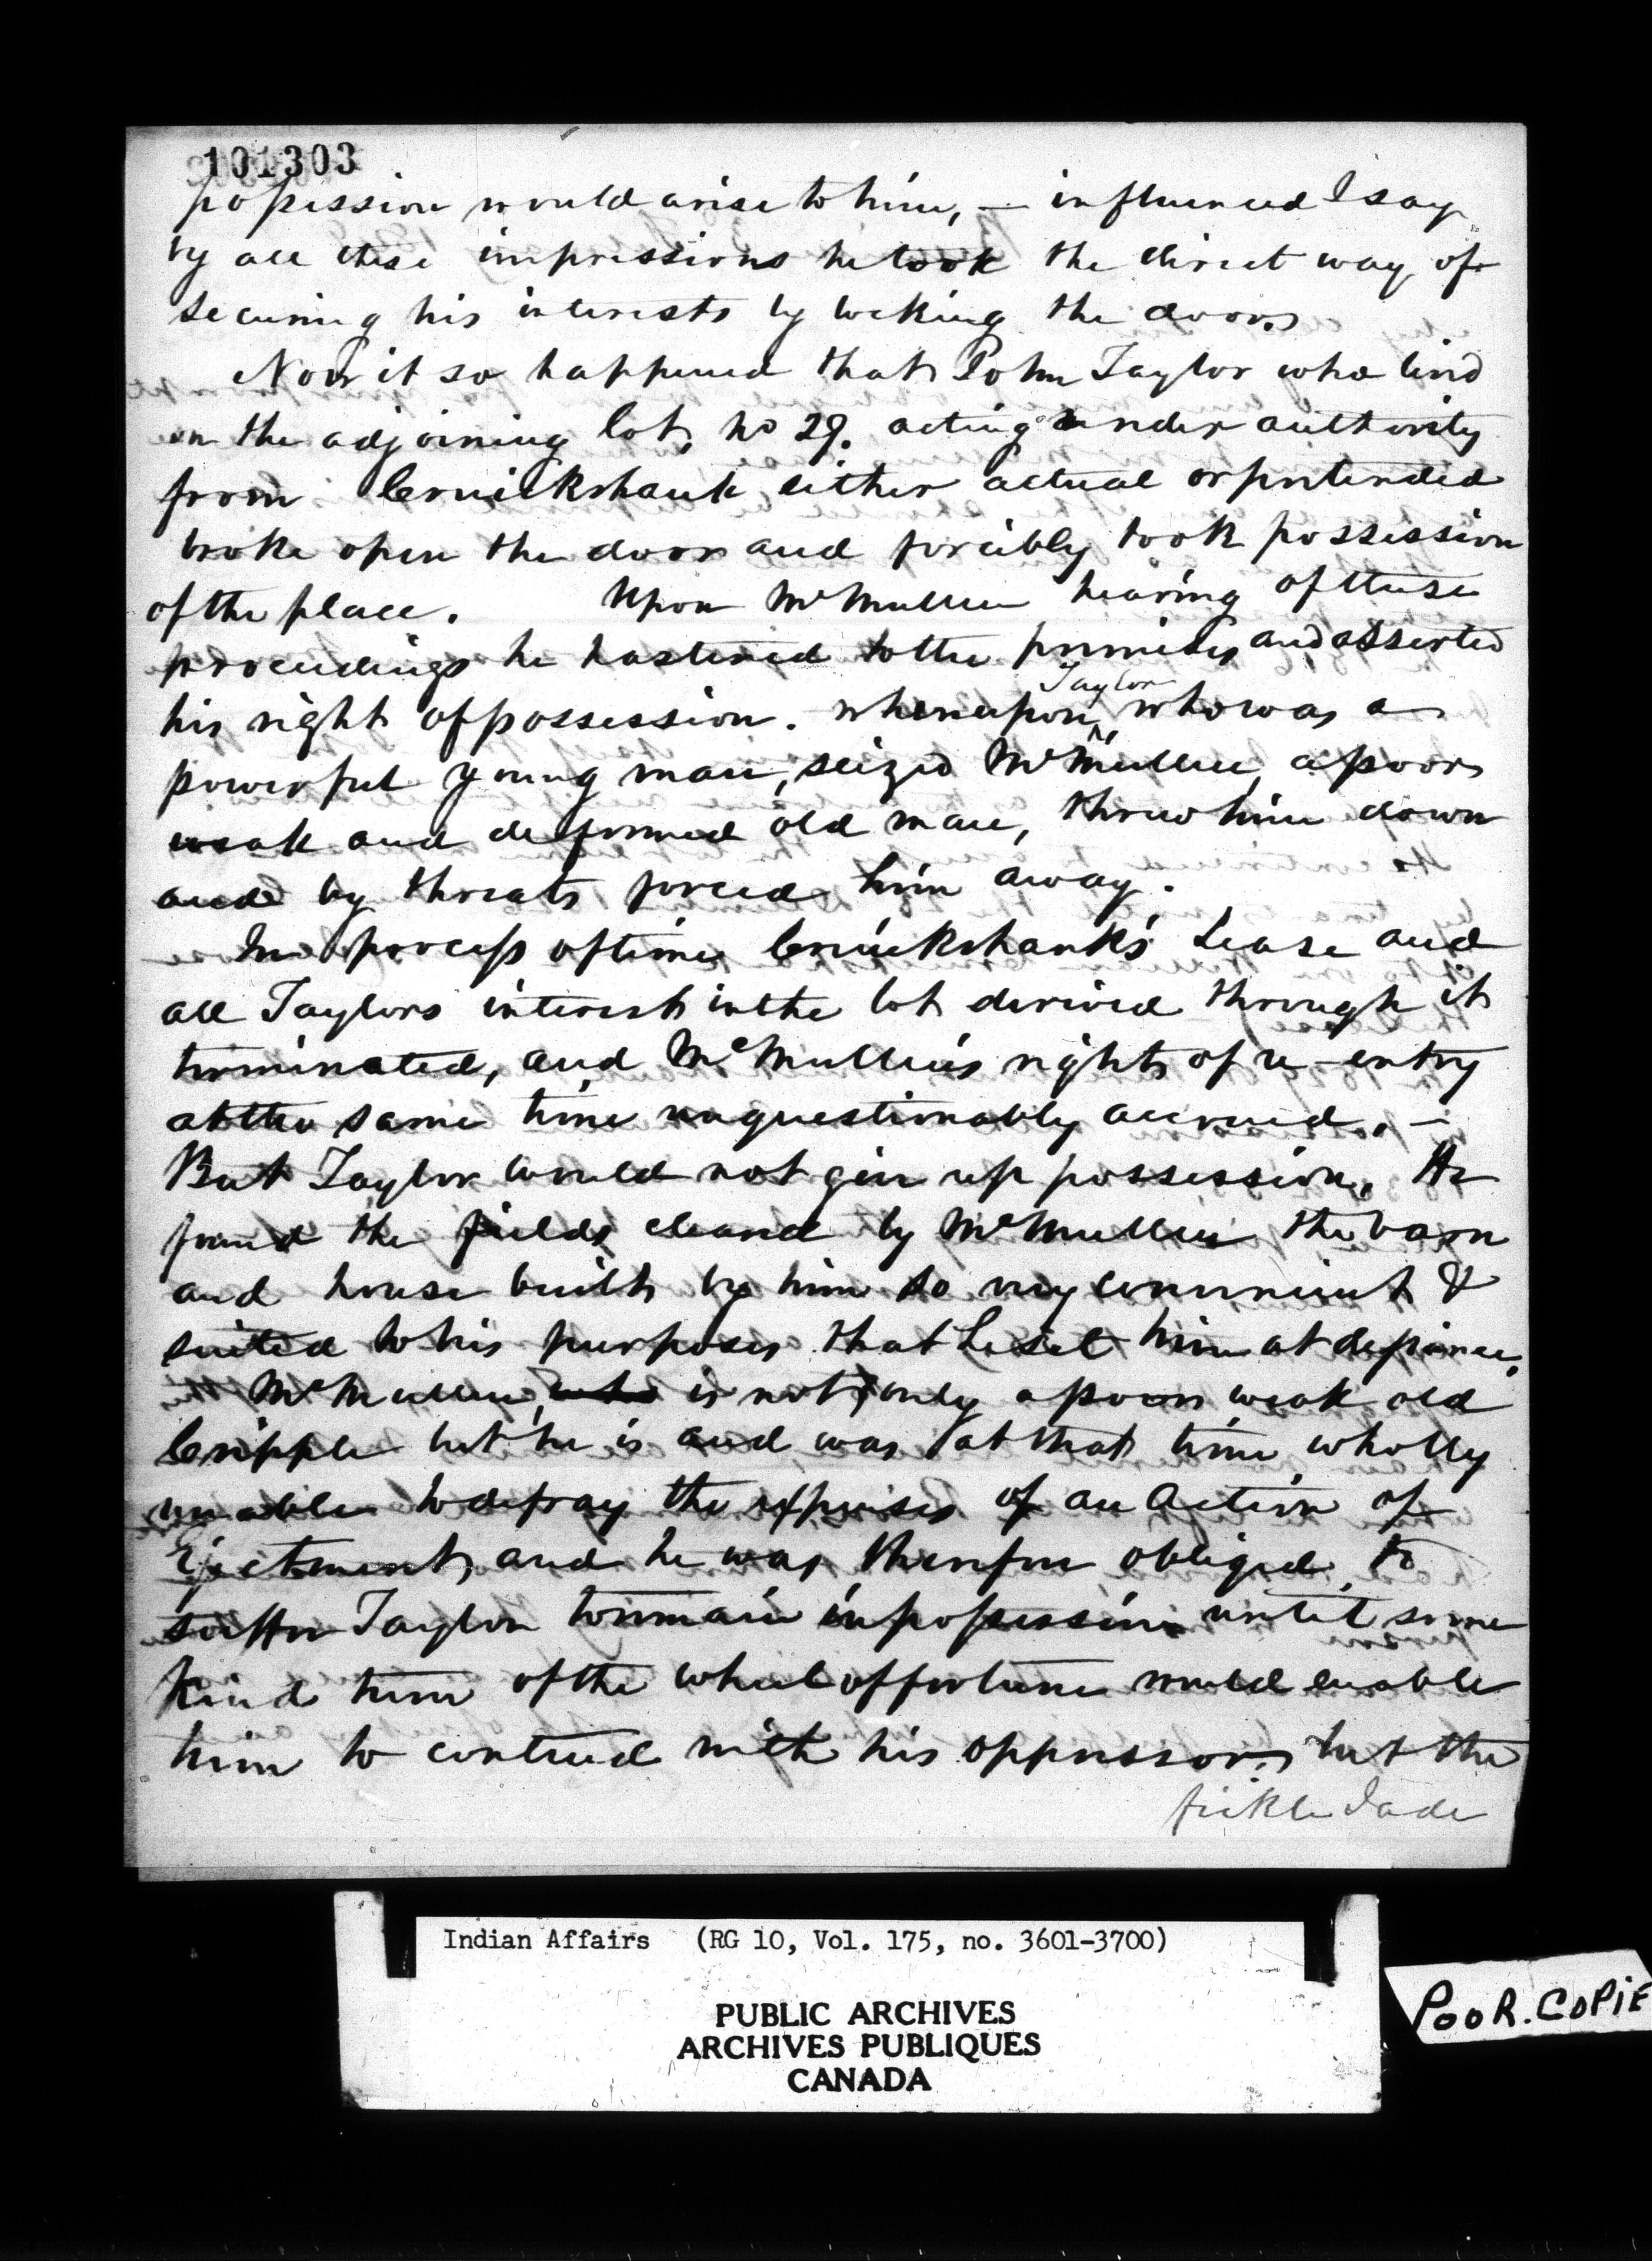 101303
possession would arise to him, — influenced I say
by all these impressions he took the direct way of
securing his interests by locking the doors
Now it so happened that John Taylor who lived
on the adjoining lot, No 29. acting under authority
from Cruickshank either actual or pretended
broke open the door and forcibly took possession
of the place. Upon McMullen hearing of these
proceedings he hastened to the premises and asserted
his right of possession. whereupon Taylor who was a
powerful young man, seized McMullen, a poor
weak and deformed old man, threw him down
and by threats forced him away.
In process of time Cruickshank's Lease and
all Taylors interest in the lot derived through it
terminated, and McMullen's rights of re-entry
at the same time unquestionably accrued. —
But Taylor would not give up possession. He
found the fields cleared by McMullen the barn
and house built by him so very convenient &
suited to his purposes that he set him at defiance.
McMullen, who is not only a poor weak old
Cripple but he is and was at that time wholly
unable to defray the expenses of an Action of
Ejectment, and he was therefore obliged to
suffer Taylor to remain in possession until some
kind turn of the wheel of fortune would enable
him to contend with his oppressor, but the
fickle Jade
Indian Affairs (RG 10, Vol. 175, no. 3601-3700)
PUBLIC ARCHIVES
ARCHIVES PUBLIQUES
CANADA
POOR. COPIE